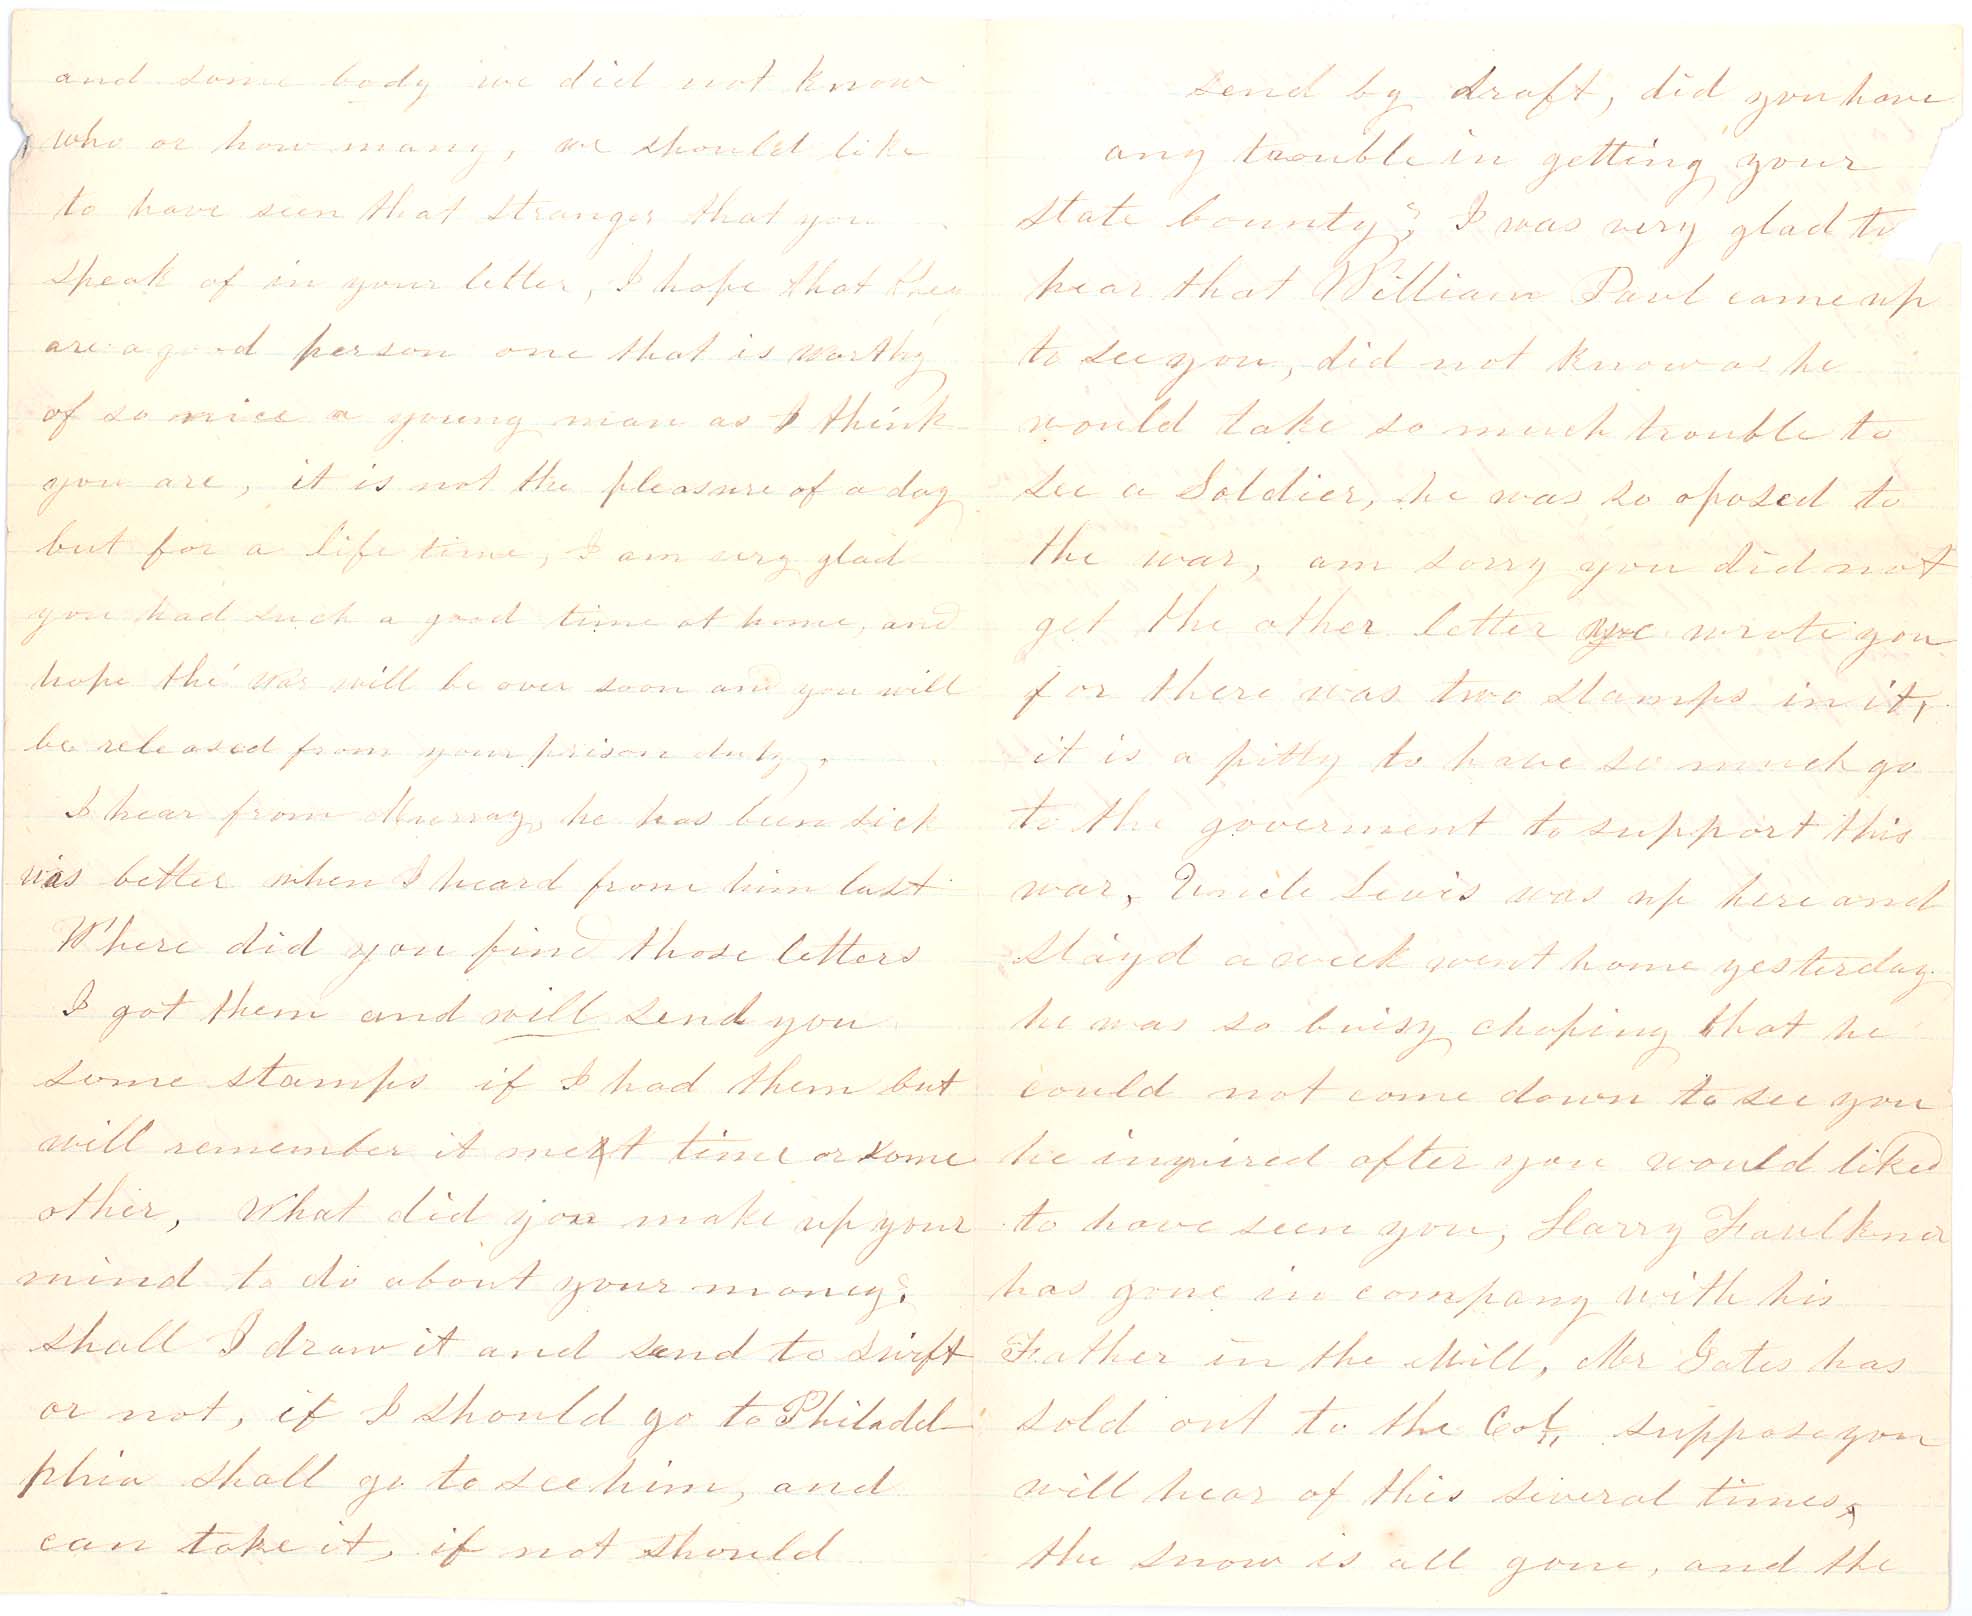 and some body we did not know
who or how many, we should like
to have seen that stranger that you
speak of in your letter, I hope that they
are a good person one that is worthy
of so nice a young man as I think
you are, it is not the pleasure of a day
but for a life time, I am very glad
you had such a good time at home, and
hope the war will be over soon and you will
be released from your prison duty,
I hear from Murray, he has been sick
was better when I heard from him last
Where did you find those letters
I got them and will send you
some stamps if I had them but
will remember it next time or some
other, What did you make up your
mind to do about your money?
shall I draw it and send to Swift
or not, if I should go to Philadel
phia shall go to see him, and
can take it, if not should
send by draft, did you have
any trouble in getting your
state bounty? I was very glad to
hear that William Paul came up
to see you, did not know as he
would take so much trouble to
see a Soldier, he was so oposed to
the war, am sorry you did not
get the other letter we wrote you
for there was two stamps in it,
it is a pitty to have so much go
to the goverment to support this
war, Uncle Lewis was up here and
stayd a week went home yesterday
he was so buisy choping that he
could not come down to see you
he inquired after you would liked
to have seen you, Harry Faulkner
has gone in company with his
Father in the Mill, Mr Gates has
sold out to the Col, suppose you
will hear of this several times,
the snow is all gone, and the